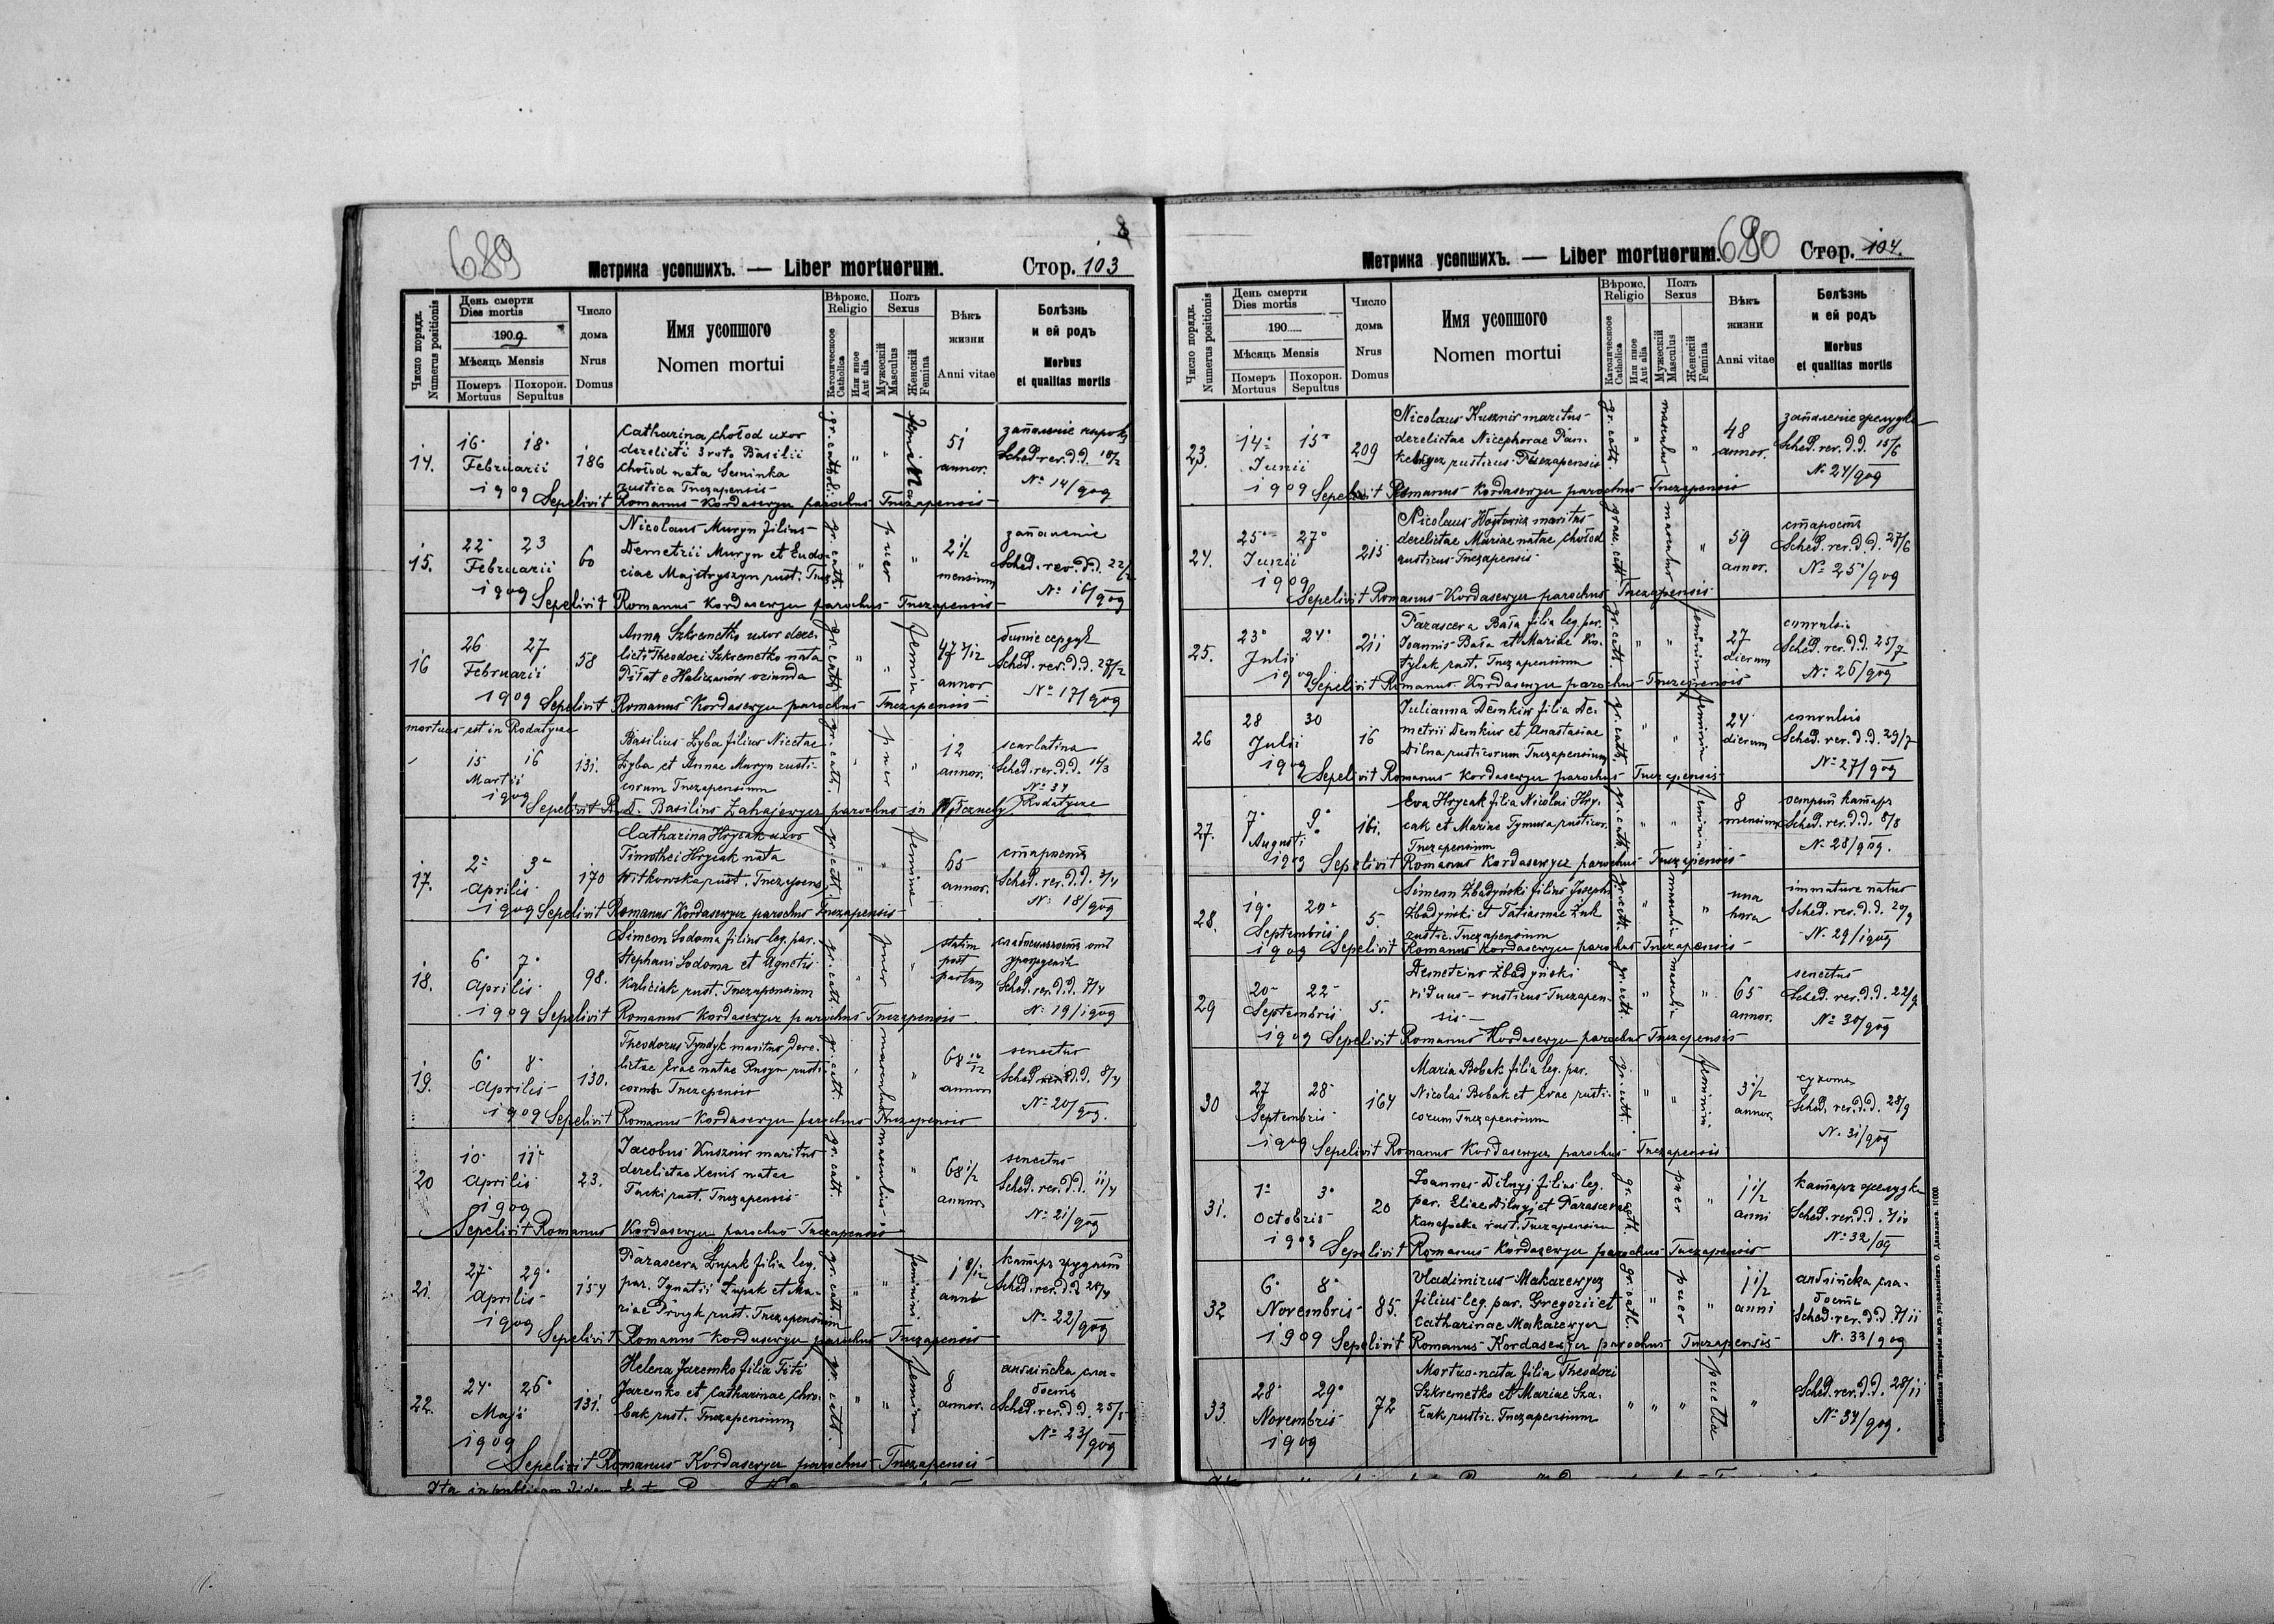 689
8
Метрика усопшихъ. — Liber mortuorum.
Стор. 103
Число порядк.
Numerus positionis
День смерти
Dies mortis
1909
Мѣсяць Mensis
Померъ
Mortuus
Похорон.
Sepultus
Число
дома
Nrus
Domus
Имя усопшого
Nomen mortui
Вѣроис.
Religio
Католическоое
Catholica
Или иное
Aut alia
Полъ
Sexus
Мужескій
Masculus
Женскій
Femina
Вѣкъ
жизни
Anni vitae
Болѣзнь
и ей родъ
Morbus
et qualitas mortis
14. 16 18 Februarii 1909 186
Catharina Chołod uxor
derelicti 3 voto Basilii
Chołod nata Seminka
rustica Tuczapensis
gr. catholi. " " femina
51 annor.
Sched. rev. d. d. 18/2
No 14/909
Sepelivit Romanus Kordasewycz parochus Tuczapensis
15. 22 23 Februarii 1909 60
Nicolaus Muryn filius
Demetrii Muryn et Eudo-
ciae Majstryszyn rust. Tucz
gr. cath. " puer "
2 1/2 mensium
запаленіе
Sched. rev. d. d. 22/2
No 16/909
Sepelivit Romanus Kordasewycz parochus Tuczapensis
16 26 27 Februarii 1909 58
Anna Szkremetko uxor dere-
licti Theodori Szkremetko nata
Piłat e Haliczanów oriunda
gr. cath. " " femin
47 annor
Sched. rev. d. d. 27/2
No 17/909
Sepelivit Romanus Kordasewycz parochus Tuczapensis
mortuus est in Rodatycze
15 16 Martii 1909 131.
Basilius Łyba filius Nicetae
Łyba et Annae Muryn rusti-
corum Tuczapensium
gr. cath. " puer "
12 annor.
scarlatina
Sched. rev. d. d. 16/3
No 34
Rodatycze
Sepelivit R. d. Basilius Zahajewycz parochus in Wołczuchy
17. 2 3 Aprilis 1909 170
Catharina Hrycak uxor
Timothei Hrycak nata
Witkowska rust. Tuczapens
gr. cath. " " femina
65 annor.
старость
Sched. rev. d. d. 3/4
No 18/909
Sepelivit Romanus Kordasewycz parochus Tuczapensis
18. 6 7 Aprilis 1909 98.
Simeon Sodoma filius leg. par.
Stephani Sodoma et Agnetis
Kaliciak rust. Tuczapensium
gr. cath. " puer "
statim
post
partum
Sched. rev. d. d. 7/4
No 19/1909
Sepelivit Romanus Kordasewycz parochus Tuczapensis
19. 6 8 Aprilis 1909 130.
Theodorus Tyndyk maritus dere-
lictae Evae natae Rusyn rusti
Tuczapensis
gr. cath. " masculus "
68 10/12 annorum
senectus
Sched. rev. d. d. 8/4
No 20/909.
Sepelivit Romanus Kordasewycz parochus Tuczapensis
20 10 11 Aprilis 1909 23.
Jacobus Kusznir maritus
derelictae Xenis natae
Tucki rust. Tuczapensis
gr. cath. " masculus "
68 1/2 annor
senectus
Sched. rev. d. d. 11/4
No 21/909
Sepelivit Romanus Kordasewycz parochus Tuczapensis
21. 27 29 Aprilis 1909 154
Parascera Łupak filia leg.
par. Ignatii Łupak et Ma-
riae rust. Tuczapensium
gr. cath. " " feminin
1 anni
катаръ
Sched. rev. d. d. 28/4
No 22/909
Sepelivit Romanus Kordasewycz parochus Tuczapensis
22. 24 26 Maji 1909 131.
Helena Jaremko filia Titi
Jaremko et Catharinae Chro-
bak rust. Tuczapensium
gr. cath. " " femina
8 annor.
англійска сла-
бость
Sched. rev. d. d. 25/5
No 23/909
Sepelivit Romanus Kordasewycz parochus Tuczapensis
Метрика усопшихъ. — Liber mortuorum.
690
Стор. 104.
Число порядк.
Numerus positionis
День смерти
Dies mortis
190
Мѣсяць Mensis
Померъ
Mortuus
Похорон.
Sepultus
Число
дома
Nrus
Domus
Имя усопшого
Nomen mortui
Вѣроис.
Religio
Католическоое
Catholica
Или иное
Aut alia
Полъ
Sexus
Мужескій
Masculus
Женскій
Femina
Вѣкъ
жизни
Anni vitae
Болѣзнь
и ей родъ
Morbus
et qualitas mortis
23. 14 15 Junii 1909 209
Nicolaus Kusznir maritus
derelictae Nicephorae Pan-
rusticus Tuczapensis
gr. cath. " masculus "
48 annor.
запаленіе
Sched. rev. d. d. 15/6
No 24/909
Sepelivit Romanus Kordasewycz parochus Tuczapensis
24. 25 27 Junii 1909 215
Nicolaus Wojtowicz maritus
derelictae Mariae natae Chołod
rusticus Tuczapensis
graec. cath. masculus "
59 annor.
старость
Sched. rev. d. d. 27/6
No 25/909
Sepelivit Romanus Kordasewycz parochus Tuczapensis
25. 23 24 Julii 1909 211
Parascera Bała filia leg. par.
Joannis Bała et Mariae Ko-
tylak rust. Tuczapensium
gr. cath. " " feminin
27 dierum
Sched. rev. d. d. 25/7
No 26/909
Sepelivit Romanus Kordasewycz parochus Tuczapensis
26 28 30 Julii 1909 16
Julianna Demkiw filia De-
metrii Demkiw et Anastasiae
Dilna rusticorum Tuczapensium
gr. cath. " " feminin
24 dierum
Sched. rev. d. d. 29/7
No 27/909
Sepelivit Romanus Kordasewycz parochus Tuczapensis
27. 7 9 Augusti 1909 161.
Eva Hrycak filia Nicolai Hry-
cak et Mariae Tymura rusticor.
Tuczapensium
gr. cath. " " feminin.
8 mensium
острый катаръ
Sched. rev. d. d. 8/8
No 28/909.
Sepelivit Romanus Kordasewycz parochus Tuczapensis
28. 19 20 Septembris 1909 5.
Simeon Zbadyński filius Josephi
Zbadyński et Tatiannae Żuk
rustic. Tuczapensium
gr. cath. masculi "
una
hora
immature natus
Sched. rev. d. d. 20/9
No 29/1909
Sepelivit Romanus Kordasewycz parochus Tuczapensis
29 20 22 Septembris 1909 5.
Demetrius Zbadyński
viduus rusticus Tuczapen-
sis
gr. cath. " masculi "
65 annor.
senectus
Sched. rev. d. d. 22/9
No 30/909
Sepelivit Romanus Kordasewycz parochus Tuczapensis
30 27 28 Septembris 1909 164
Maria Bobak filia leg. par.
Nicolai Bobak et Evae rusti-
corum Tuczapensium
gr. cath. " " feminin.
3 1/2 annor.
сухоты
Sched. rev. d. d. 28/9
No 31/909
Sepelivit Romanus Kordasewycz parochus Tuczapensis
31. 1 3 Octobris 1909 20
Joannes Dilnyj filius leg.
par. Eliae Dilnyj et Parascerae
Kanafocka rust. Tuczapensium
gr. cath. puer "
1 1/2 anni
катаръ
Sched. rev. d. d. 3/10
No 32/09
Sepelivit Romanus Kordasewycz parochus Tuczapensis
32 6 8 Novembris 1909 85.
Vladimirus Makarewycz
filius leg. par. Gregorii et
Catharinae Makarewycz
gr. cath. " puer "
1 1/2 anni
англійска сла-
бость
Sched. rev. d. d. 7/11
No 33/909
Sepelivit Romanus Kordasewycz parochus Tuczapensis
33. 28 29 Novembris 1909 72
Mortuo-nata filia Theodori
Szkremetko et Mariae Sza-
łak rustic. Tuczapensium
" " " puella "
Sched. rev. d. d. 28/11
No 34/909.